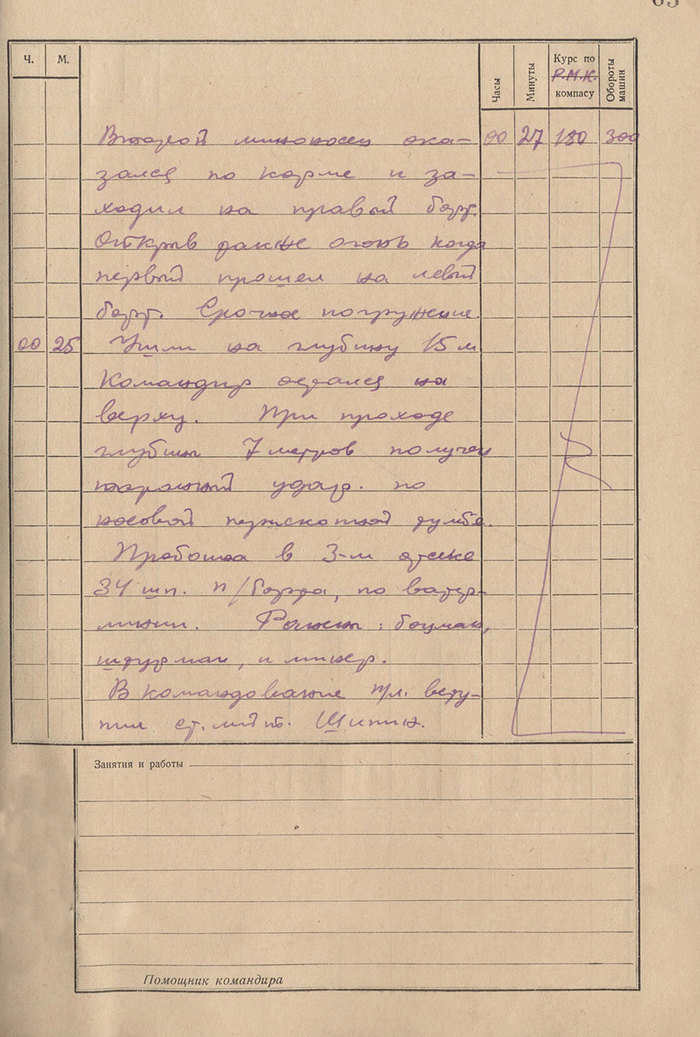 65
Ч. М. Часы Минуты Курс по Р.М.К. компасу Обороты машин
Второй миноносец ока- 00 27 180 300
зался по корме и за-
ходил на правый борт.
Открыв также огонь когда
первый прошел на левый
борт. Срочное погружение.
00 25 Ушли на глубину 15 м
Командир остался на
верху. При проходе
глубины 7 метров получен
таранный удар. по
носовой тумбе.
Пробоина в 3-м отсеке
34 шп. п/борта, по ватер-
линии. Ранены: боцман,
штурман, и минер.
В командование пл. всту-
пил ст. лейт. Шипин.
Занятия и работы
Помощник командира